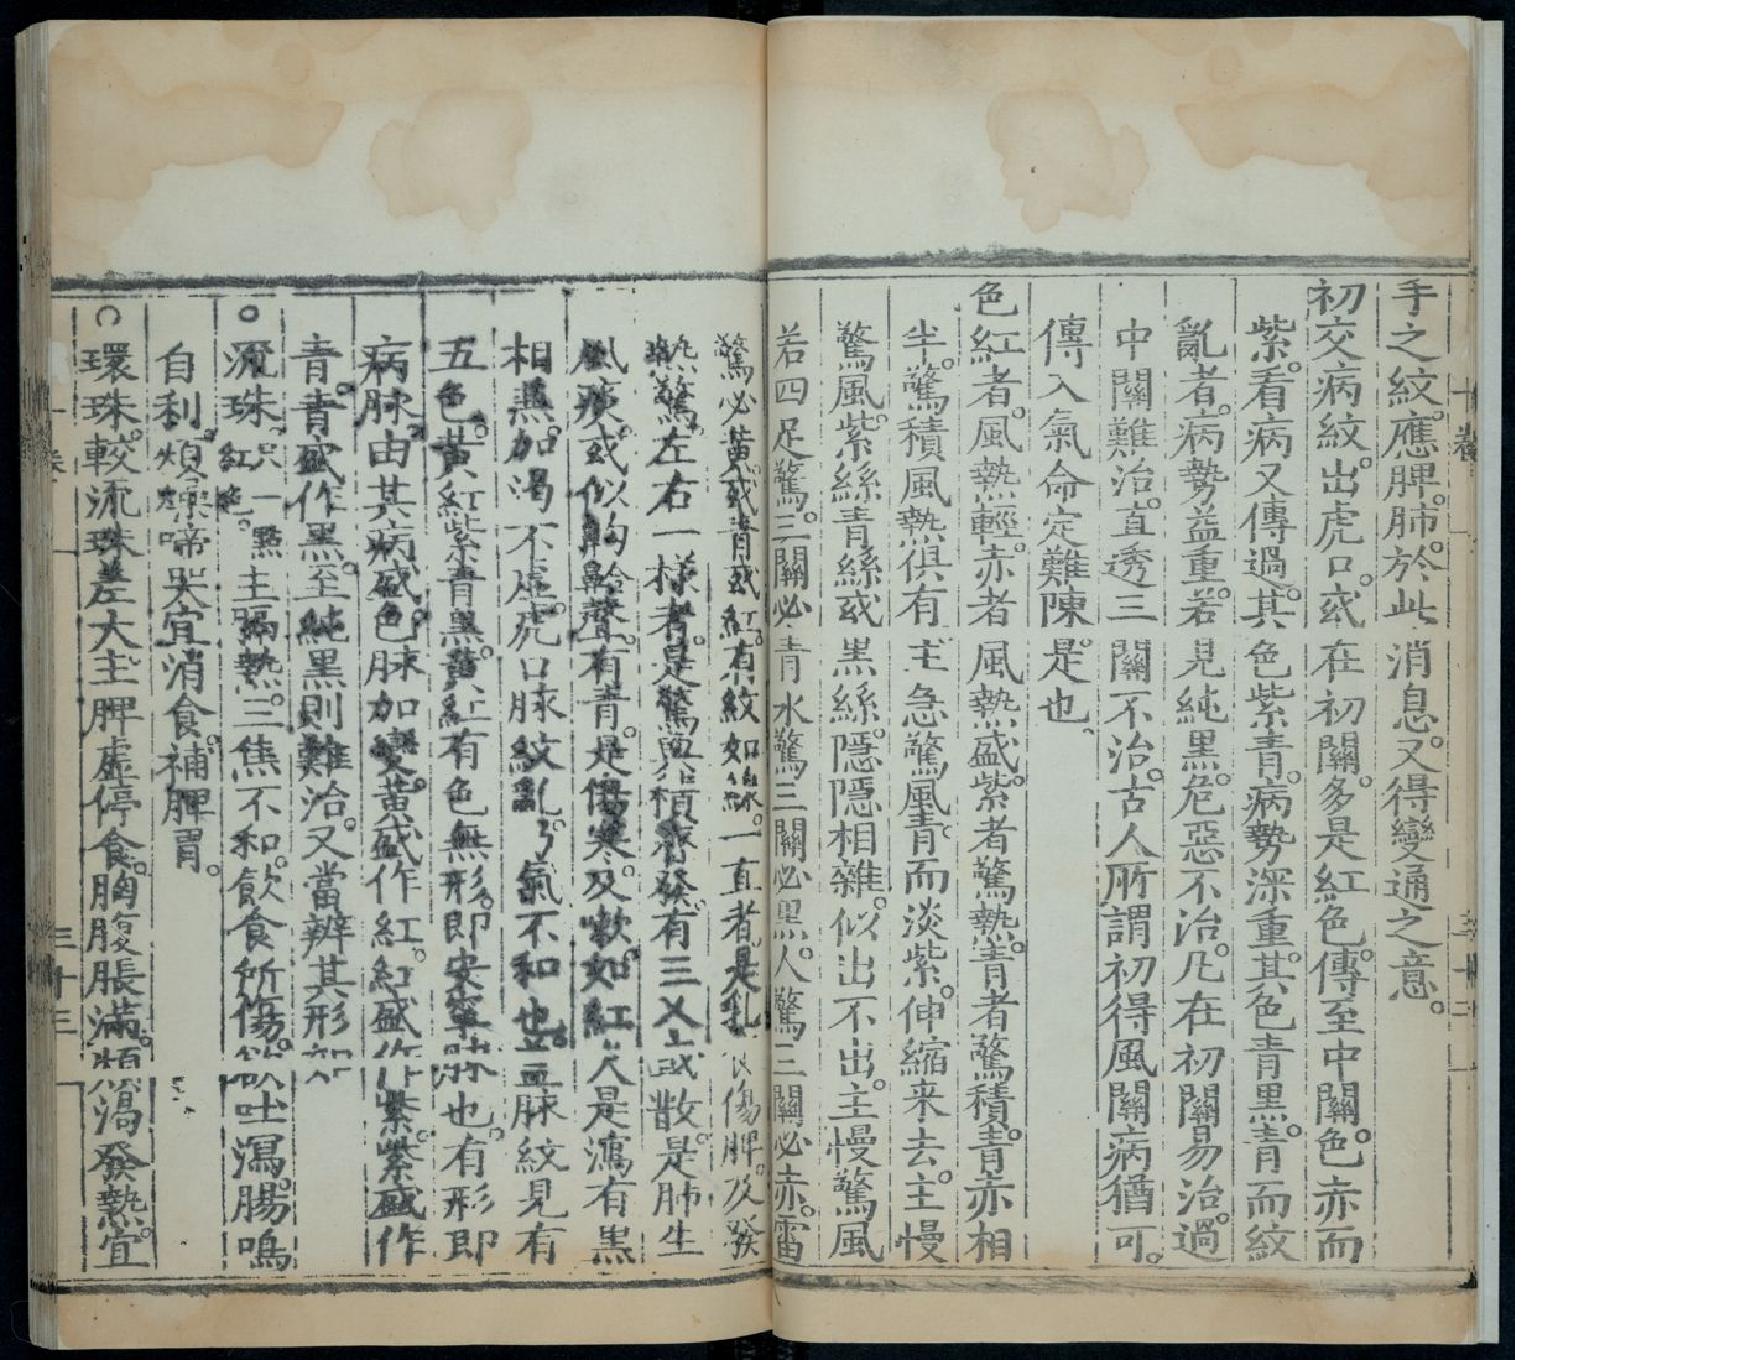 手之紋。應脾。肺。於此消息。又得變通之意。
初交病紋出虎口。或在初關。多是紅色。傳至中關。色赤而
紫。看病又傳過。其色紫青。病勢深重。其色青黑。青而紋
亂者。病勢益重。若見純黑。危惡不治。凡在初關易治。過
中關難治。直透三關不治。古人所謂初得風關病猶可。
傳入氣命定難陳是也
色紅者。風熱輕。赤者風熱盛。紫者驚熱。青者驚積。青赤相
半。驚積風熱俱有主急驚風。青而淡紫。伸縮来去。主慢
驚風。紫絲青絲或黑絲。隱隱相雜。似出不出。主慢驚風
若四足驚。三關必青水驚三關必黑。人驚三關必赤。雷
驚必黃。或青或紅。有紋如線。一直者。是乳食傷脾。及發
熱驚。左右一樣者。是驚與積齊發。有三叉或散。是肺生
風痰。或似齁䶎聲。有青。是傷寒及嗽。如紅火是瀉有黑
相兼。加渴不虛。虎口脉紋亂。乃氣不和也。脉紋見有
五色。黃紅紫青黑。黃紅有色無形。即安寧脉也。有形即
病脉。由其病盛。色脉加變。黃盛作紅。紅盛作紫。紫盛作
青。青盛作黑。至純黑則難治。又當辨其形
○流珠。只一點紅色。主膈熱。三焦不和。飲食所傷。欲吐瀉。腸鳴
自利。煩燥啼哭。宜消食。補脾胃。
○環珠。較流珠差大。主脾虛停食。胸腹脹滿。煩渴發熱。宜
三十三